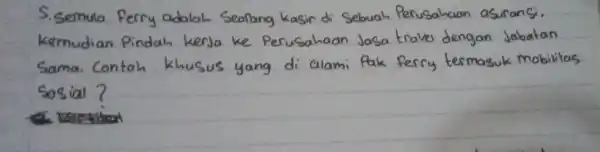 5. Semula Ferry adalah Seorang Kasir di Sebuah Perusahaan asuransi.
Kemudian Pindah kerja ke Perusahaan Jasa travel dengan Jabatan
Sama. Contoh khusus yang di alami Pak Ferry termasuk mobilitas
Sosial ?